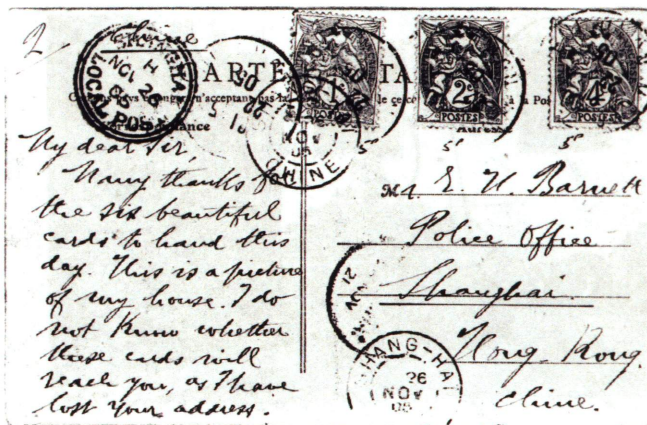 2
Chine
CARTE POSTALE
SHANGHAI
H
NOV 26
05
LOCAL POST
1
2c
4
POSTES
POSTES
5
5
5
NOV
05
CHINE
Adresse
My dear Sir,
Many thanks for
the six beautiful
cards to hand this
day. This is a picture
of my house. I do
not know whether
these cards will
reach you, as I have
lost your address.
Mr. E. H. Barnett
Police Office
Shanghai.
Hong Kong.
Chine.
21
NOV
SHANG-HAI
26
NOV
05